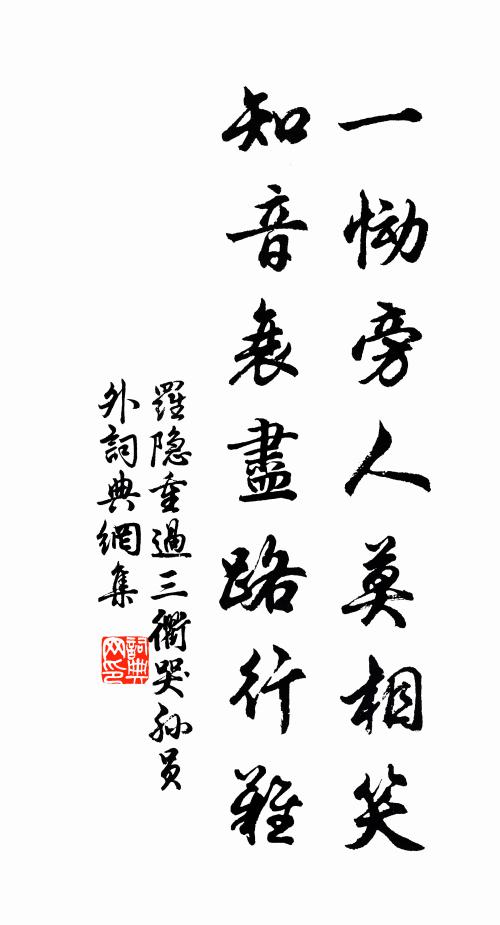 一慟旁人莫相笑
知音衰盡路行難
羅隐重過三衢哭孙員
外詞典網集
詞典
网印